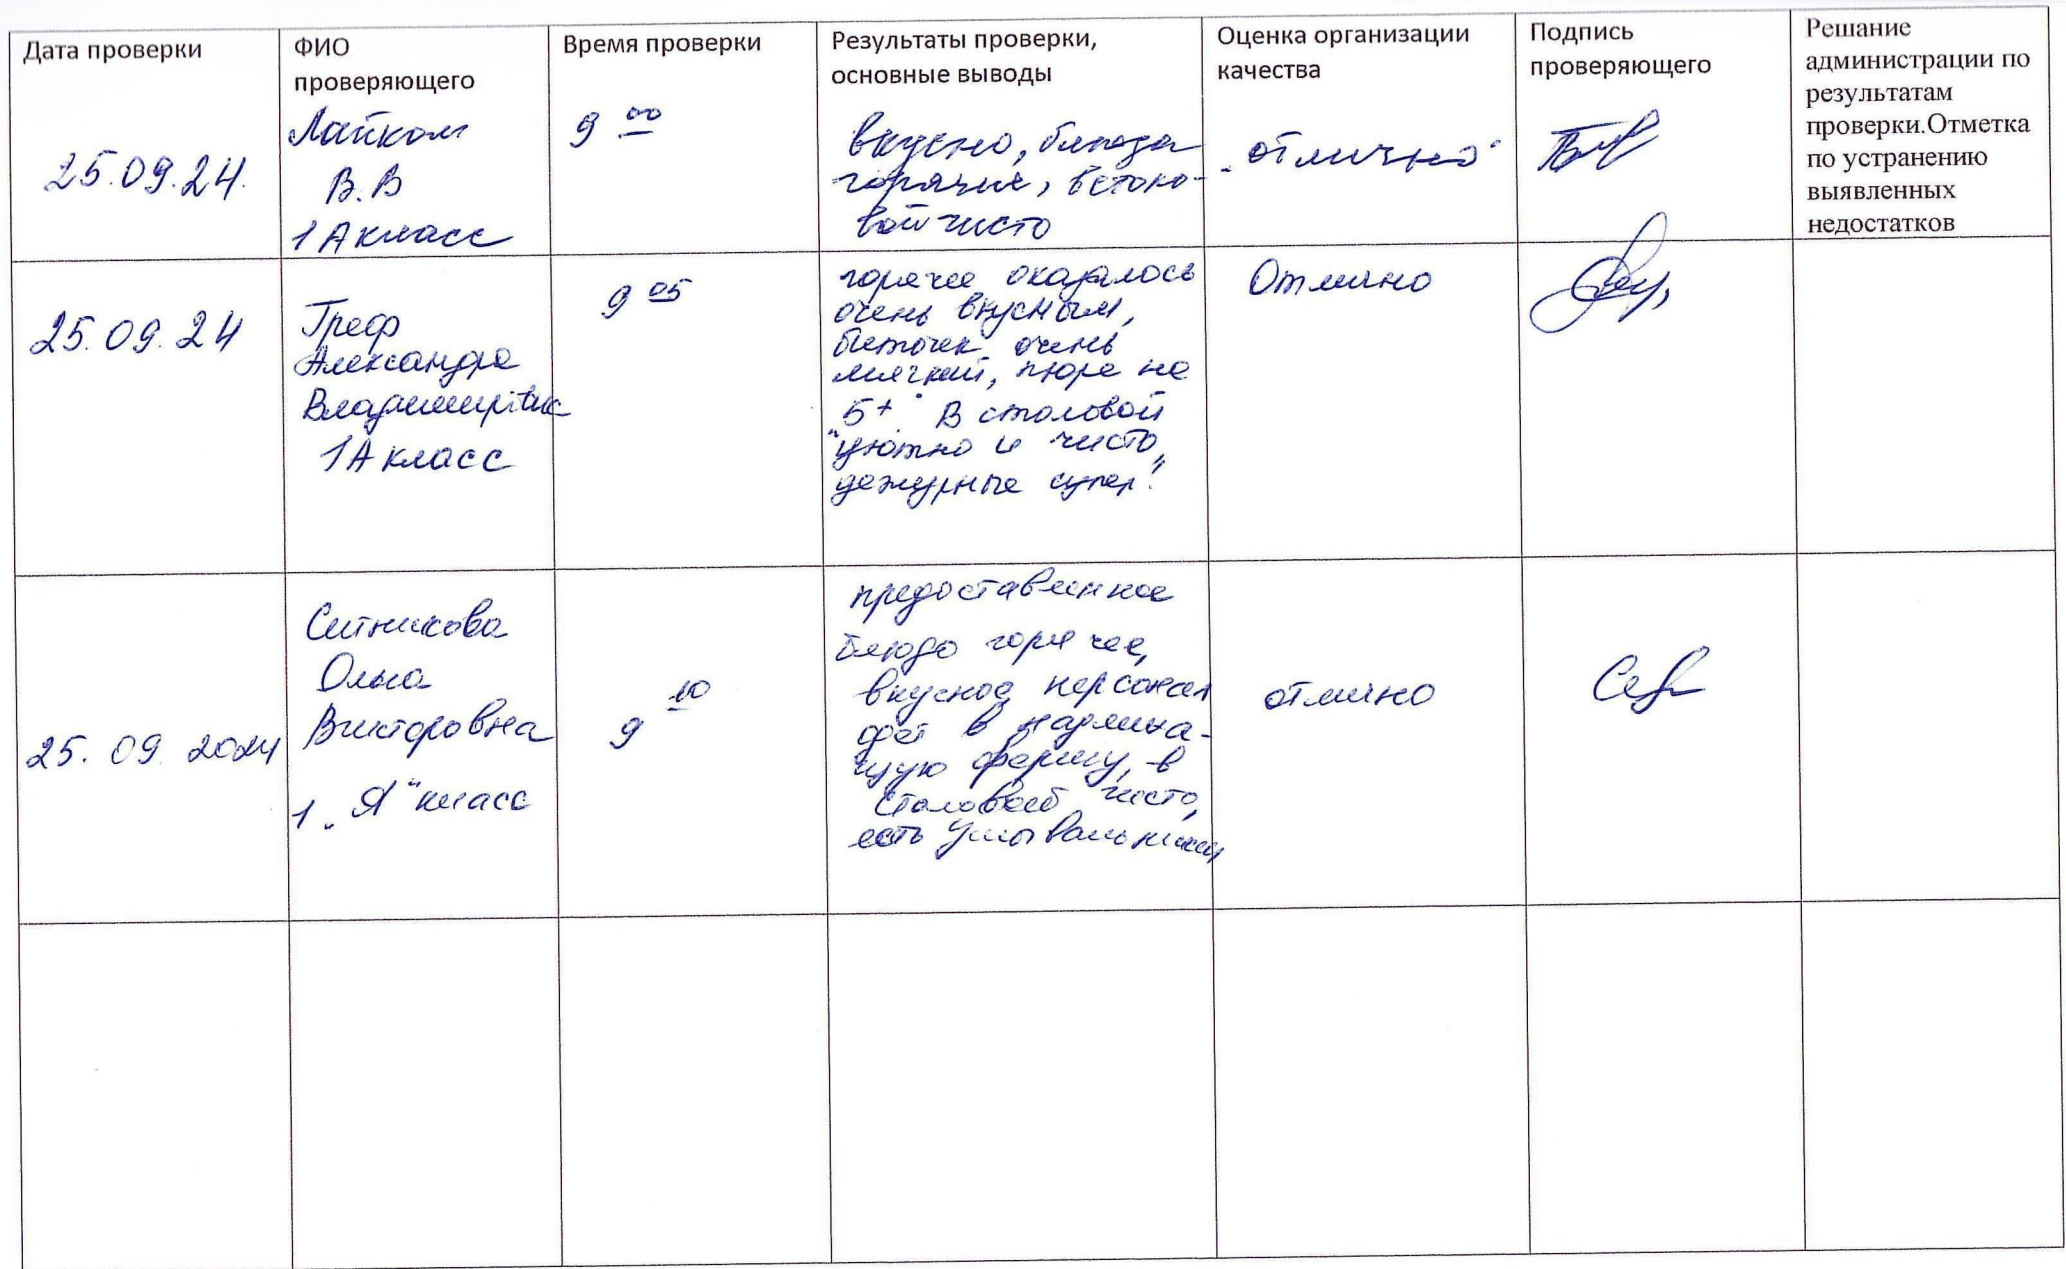 Дата проверки
ФИО
проверяющего
Время проверки
Результаты проверки,
основные выводы
Оценка организации
качества
Подпись
проверяющего
Решание
администрации по
результатам
проверки.Отметка
по устранению
выявленных
недостатков
25.09.24.
В.В
1А класс
9 00
вкусно, блюда
горячие, в столо-
вой чисто
"отлично"
25.09.24
Греф
Александра
1А класс
9 05
горячее оказалось
очень вкусным,
биточек очень
мягкий, пюре на
"5+" В столовой
уютно и чисто,
дежурные супер!
Отлично
25.09.2024
Ситникова
Ольга
Викторовна
1 "Я" класс
9 10
предоставленное
блюдо горячее,
вкусное, персонал
чисто,
есть умывальники
отлично